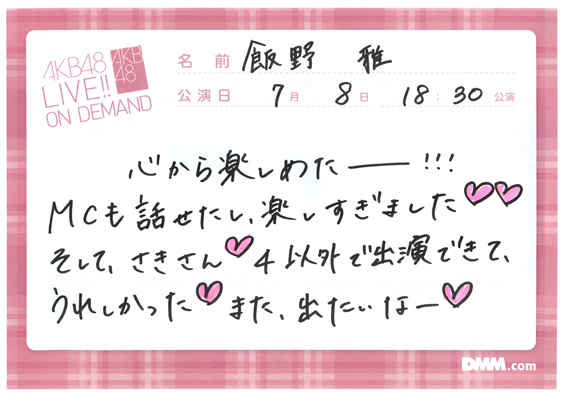 AKB48
LIVE!!
ON DEMAND
AKB
48
名前 飯野 雅
公演日 7月 8日 18:30公演
心から楽しめたー!!!
MCも話せたし、楽しすぎました♡♡
そして、さきさん♡4以外で出演できて、
うれしかった♡また、出たいなー♡
DMM.com